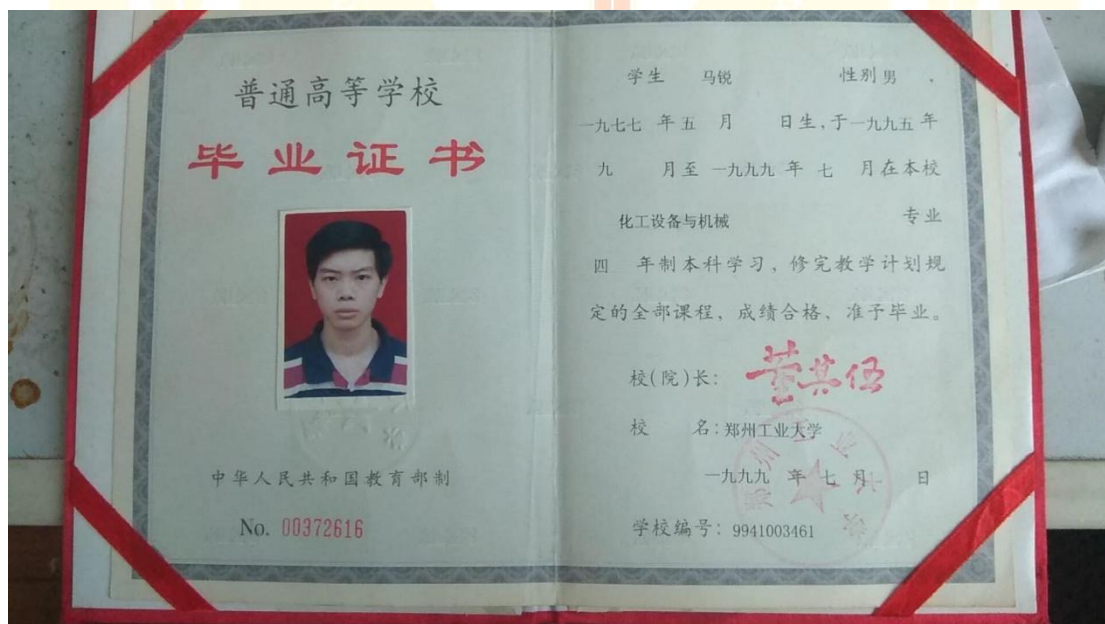 普通高等学校
毕业证书
中华人民共和国教育部制
No. 00372616
学生 马锐 性别 男 ，
一九七七 年 五 月 日生，于 一九九五 年
九 月至 一九九九 年 七 月在本校
化工设备与机械 专业
四 年制本科学习，修完教学计划规
定的全部课程，成绩合格，准予毕业。
校(院)长： 董其伍
校 名：郑州工业大学
一九九九 年 七 月 日
学校编号：9941003461